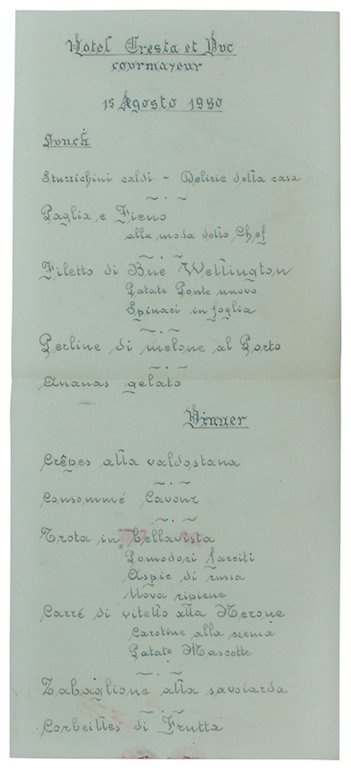 Hotel Cresta et Duc
courmayeur
15 Agosto 1980
Lunch
Stuzzichini caldi - Delizie della casa
Paglia e Fieno
alla moda dello Chef
Filetto di Bue Wellington
Patate Ponte nuovo
Epinaci in foglia
Perline di melone al Porto
Ananas gelato
Dinner
Crêpes alla valdostana
Consommé Cavour
Trota in bellavista
Pomodori farciti
Aspic di russa
Uova ripiene
Carré di vitello alla Nerone
Carotine alla crema
Patate Mascotte
Zabaglione alla savoiarda
Corbeilles di Frutta